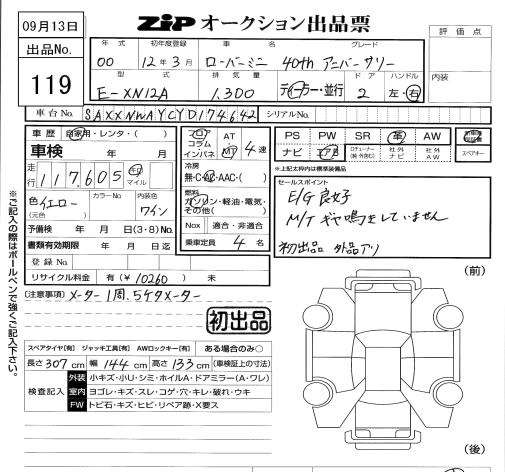 09月13日
出品No.
119
ZIP オークション出品票
評価点
内装
年式 初年度登録 車名 グレード
00 12年3月 ローバーミニ 40th アニバーサリー
型式 排気量 ドア ハンドル
E-XN12A 1,300 ディーラー・並行 2 左・右
車台No. SAXXNWAYCYD174642 シリアルNo.
車歴 自家用・レンタ・( )
車検 年 月
走行 117,605 km マイル
色 イエロー (元色) カラーNo. 内装色 ワイン
予備検 年 月 日(3・8)No.
書類有効期限 年 月 日迄
登録No.
リサイクル料金 有(¥10260) 未
フロア コラム インパネ AT MT 4速
冷房
無・C・AC・AAC・( )
燃料
ガソリン・軽油・電気・その他( )
Nox 適合・非適合
乗車定員 4名
PS PW SR 革 AW
ナビ エアB 社外ナビ 社外AW スペアキー
※上記太枠内は標準装備品
セールスポイント
E/G良好
M/T ギヤ鳴きしていません
初出品 外品アリ
(注意事項) メーター1周.5ケタメーター
初出品
スペアタイヤ[有] ジャッキ工具[有] AWロックキー[有] ある場合のみ○
長さ307cm 幅144cm 高さ133cm (車検証上の寸法)
検査記入
外装 小キズ・小U・シミ・ホイルA・ドアミラー(A・ワレ)
室内 ヨゴレ・キズ・スレ・コゲ・穴・キレ・破れ・ウキ
FW トビ石・キズ・ヒビ・リペア跡・X要ス
(前)
(後)
※ご記入の際はボールペンで強くご記入下さい。